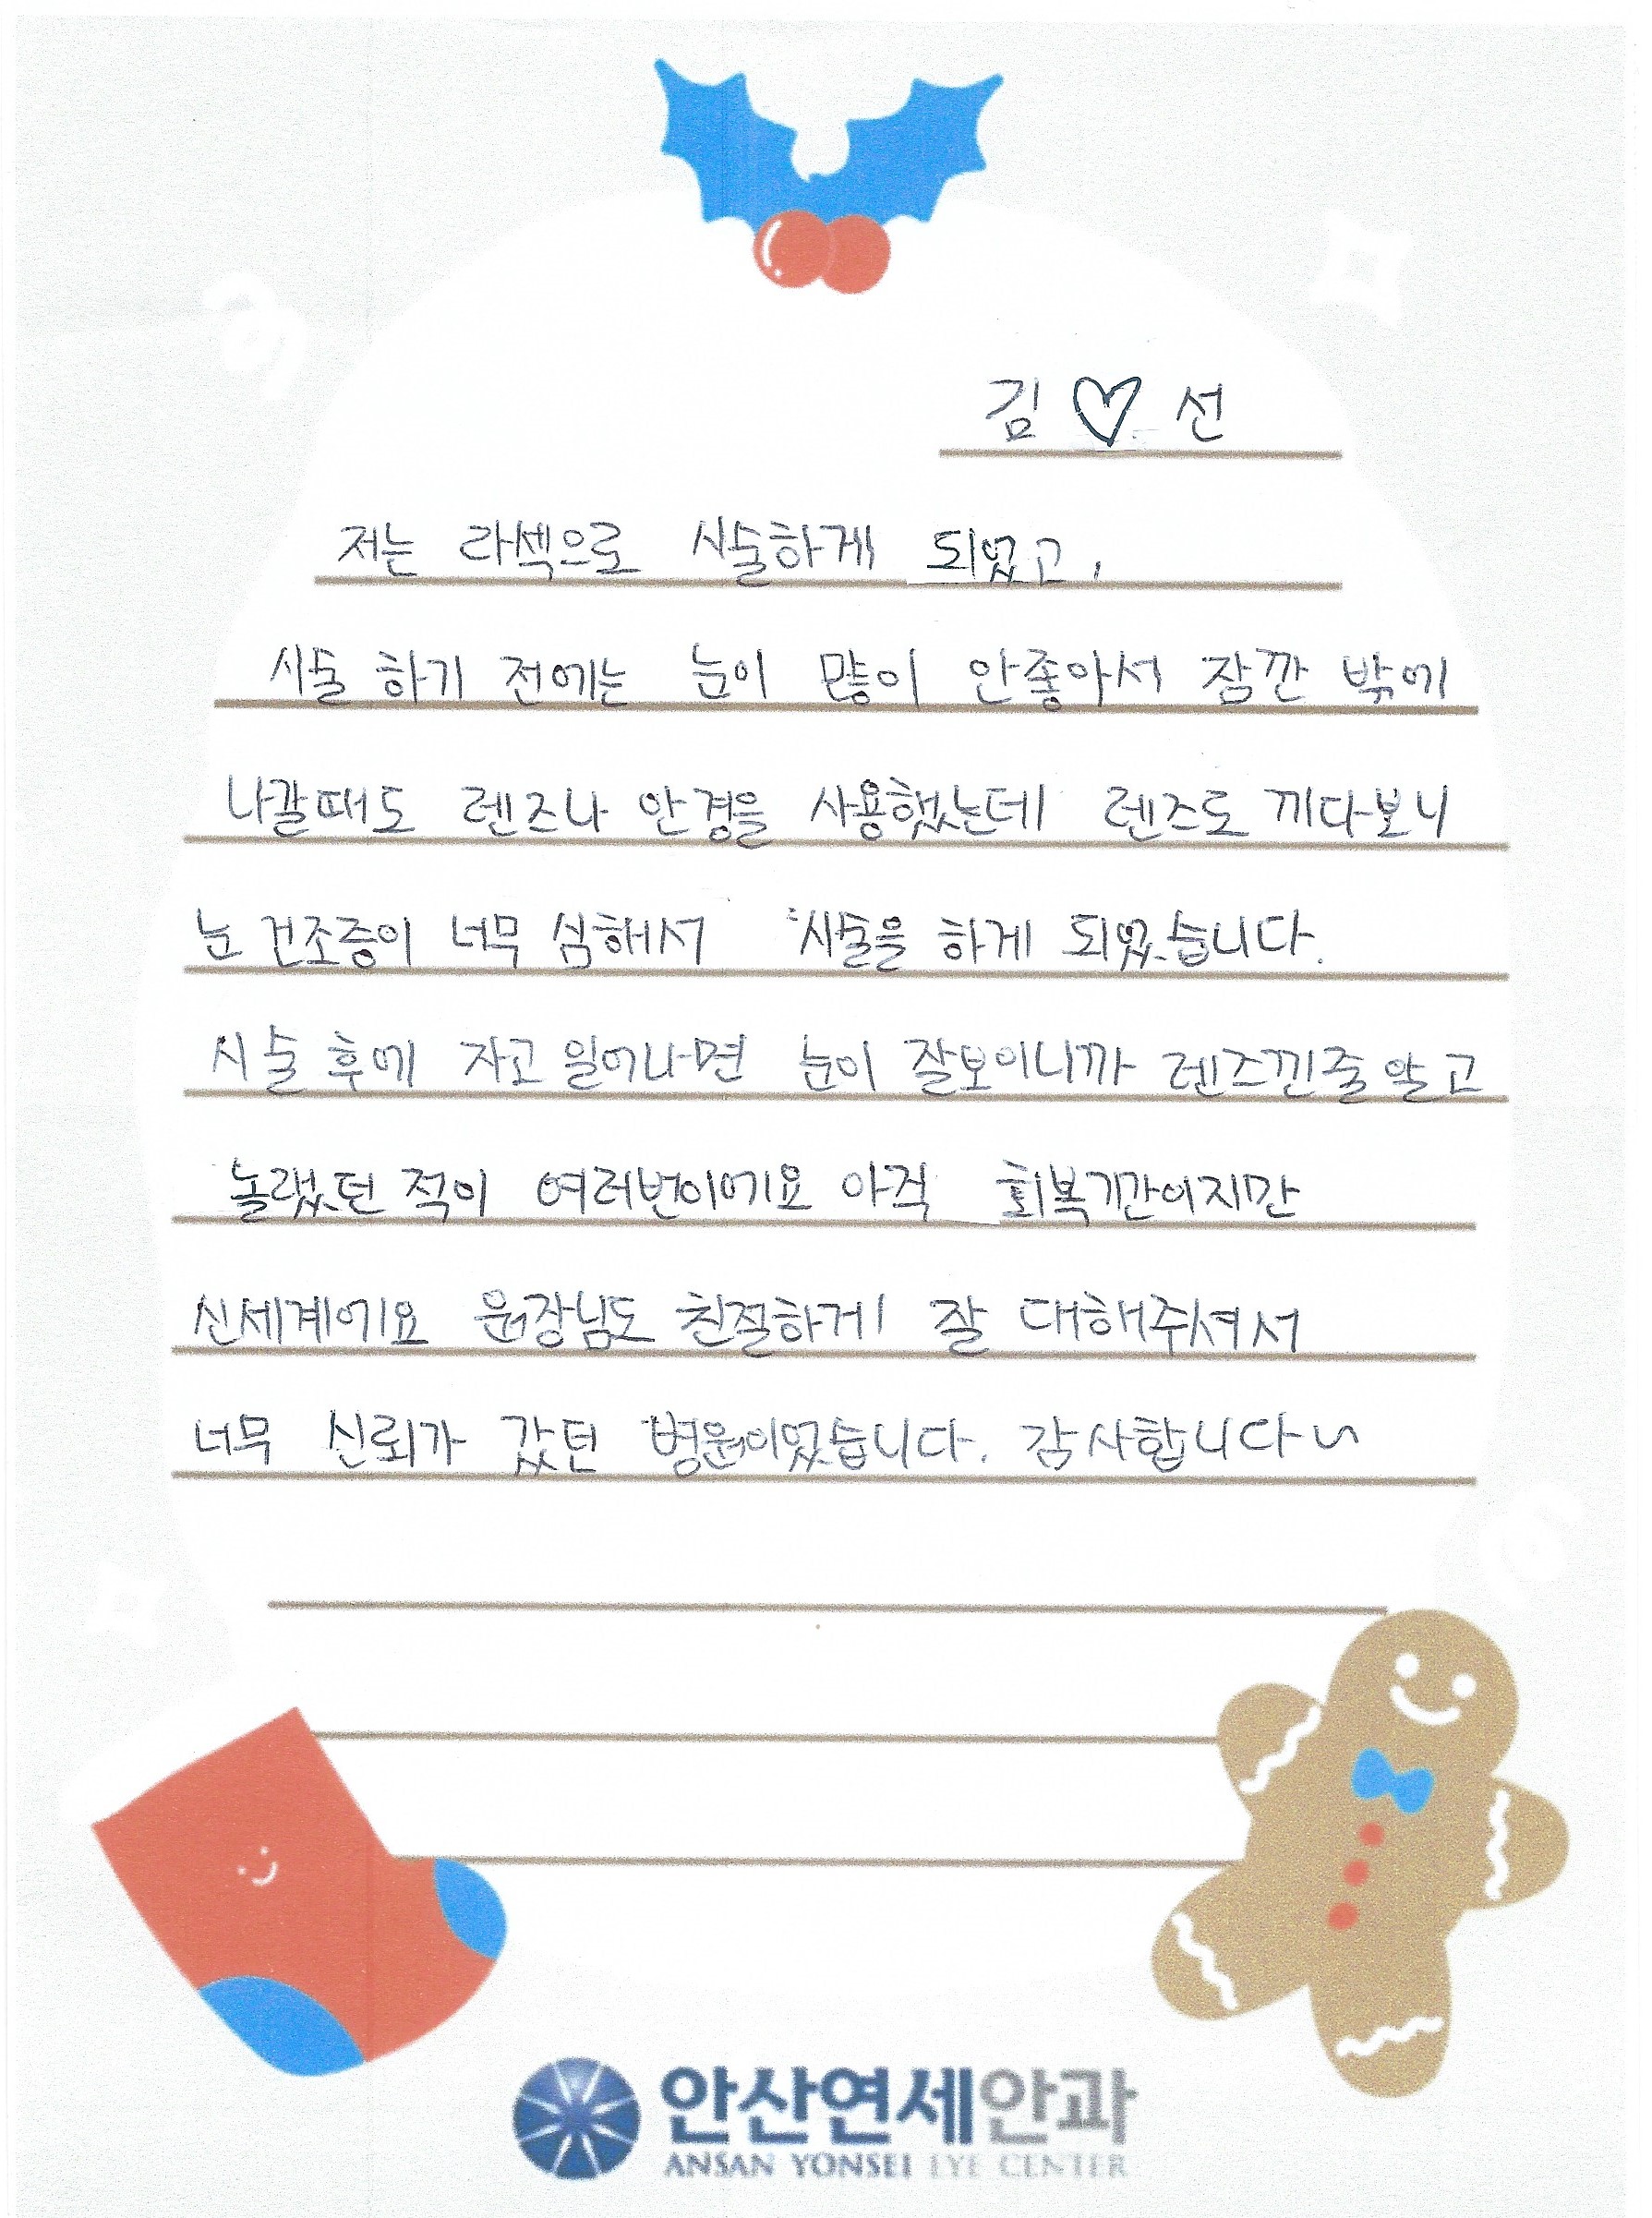 김 ♡ 선
저는 라섹으로 시술하게 되었고,
시술 하기 전에는 눈이 많이 안좋아서 잠깐 밖에
나갈때도 렌즈나 안경을 사용했는데 렌즈로 끼다보니
눈 건조증이 너무 심해서 시술을 하게 되었습니다.
시술 후에 자고 일어나면 눈이 잘보이니까 렌즈낀줄 알고
놀랬던 적이 여러번이에요 아직 회복기간이지만
신세계에요 원장님도 친절하게 잘 대해주셔서
너무 신뢰가 갔던 병원이었습니다. 감사합니다~
안산연세안과
ANSAN YONSEI EYE CENTER